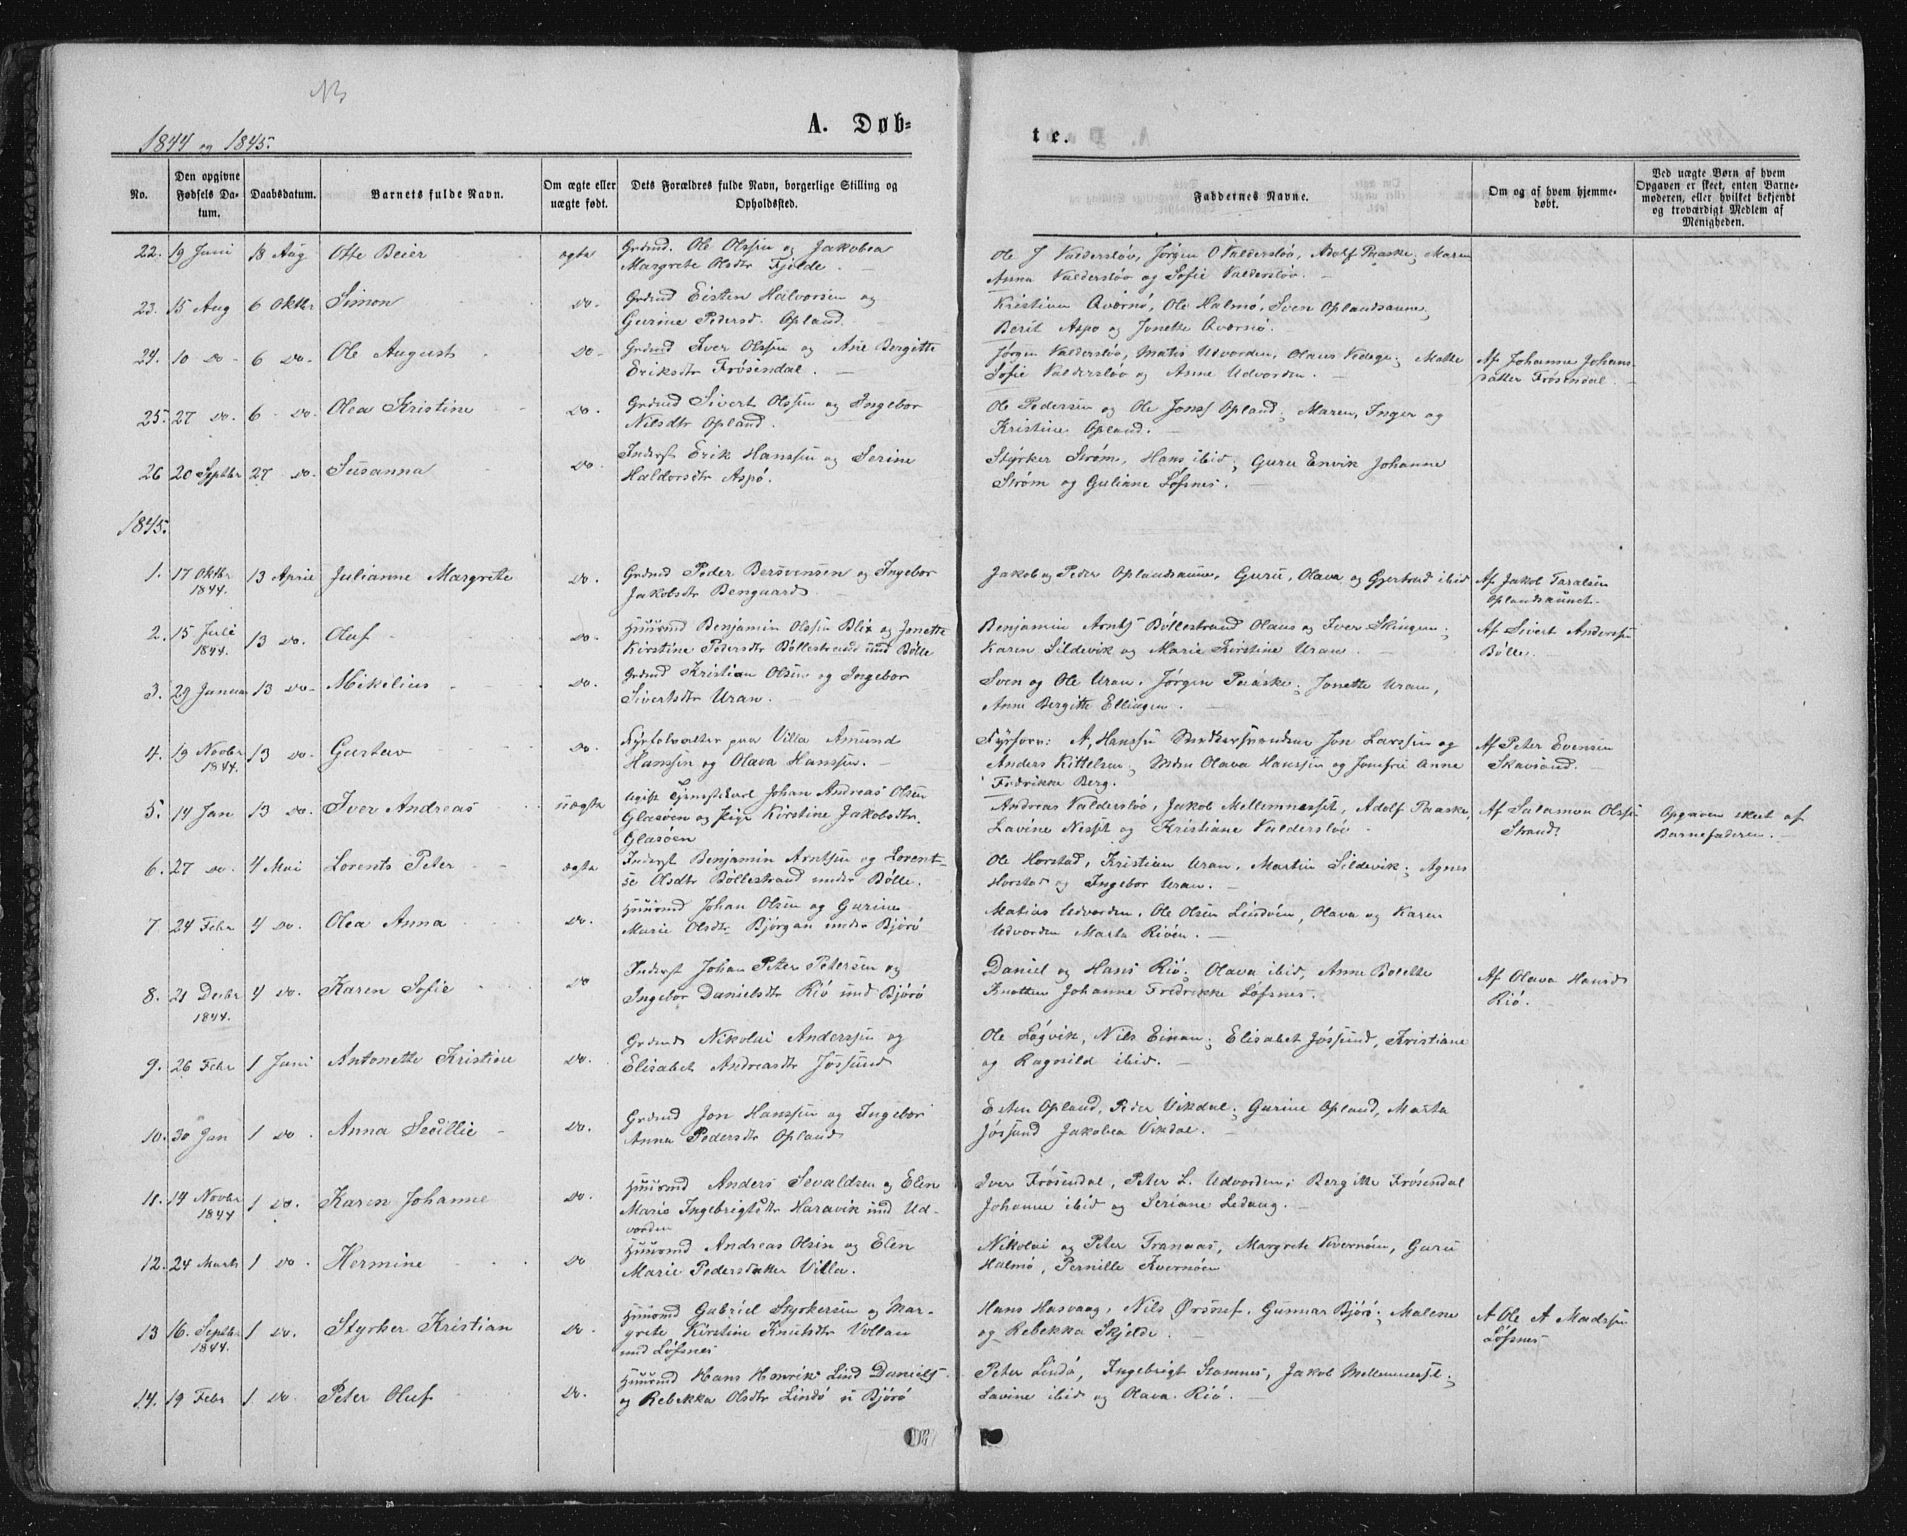 NB
1844 og 1845.
A. Døb-
te.
No.
Den opgivne Fødsels Datum.
Daabsdatum.
Barnets fulde Navn.
Om ægte eller uægte født.
Dets Forældres fulde Navn, borgerlige Stilling og Opholdssted.
Faddernes Navne.
Om og af hvem hjemmedøbt.
Ved uægte Børn af hvem Opgaven er skeet, enten Barnemoderen, eller hvilket bekjendt og troværdigt Medlem af Menigheden.
22. 19 Juni 18 Aug Otte Beier ægte Grdmd. Ole Olssen og Jakobea
Margrete Olsdtr Fjelde.
Ole J Valdersløv, Jørgen O Valdersløv, Adolf Paaske, Maren
Anna Valdersløv og Sofie Valdersløv.
23. 15 Aug 6 Oktbr Simon do. Grdmd Eisten Halvorsen og
Gurine Pedersd. Opland.
Kristian Qvernø, Ole Halmø, Sven Oplandsaune,
Berit Aspø og Jonette Qvernø.
24. 10 do 6 do. Ole August do. Grdmd Iver Olssen og Ane Bergitte
Eriksdtr Frøsendal.
Jørgen Valdersløv, Matis Udvorden, Olaus ; Mette
Sofie Valdersløv og Anne Udvorden.
Af Johanne Johans
datter Frøsendal.
25. 27 do. 6 do. Olea Kristine do. Grdmd Sivert Olssen og Ingebor
Nilsdtr Opland.
Ole Pedersen og Ole Jonss Opland; Maren, Inger og
Kristine Opland.
26 20 Septbr 27 do. Susanna do. Inderst Erik Hanssen og Serine
Haldorsdtr Aspø.
Styrker Strøm, Hans ibid; Guru Envik Johanne
Strøm og Guliane Løfsnes.
1845.
1. 17 Oktbr 1844. 13 April Julianne Margrete do. Grdmd Peder Bersvensen og Ingebor
Jakobsdtr Bengaard
Jakob og Peder Oplandsaune, Guru, Olava og Gjertrud ibid
Af Jakob Taralsen
Oplandsaunet.
2. 15 Juli 1844. 13 do. Oluf do. Huusmd Benjamin Olssen Blix og Jonette
Kirstine Pedersdtr Bøllestrand und Bølle
Benjamin Arntss Bøllestrand Olaus og Iver Skingen;
Karen Sildevik og Marie Kirstine Uran.
Af Sivert Anderssen
Bølle.
3. 29 Januar 13 do. Mikilius do. Grdmd Kristian Olsen og Ingebor
Sivertsdtr Uran.
Sven og Ole Uran, Jørgen Paaske; Jonette Uran,
Anne Bergitte Ellingen.
4. 19 Novbr 1844. 13 do. Gustav do. Fyrfolvalter paa Villa Amund
Hanssen og Olava Hanssen.
Fyrforv: A, Hanssen Jon Larssen og
Anders Kittelsen; Mdm Olava Hanssen og Jomfru Anne
Fredrikke Berg.
Af Peter Evensen
Skavsand.
5. 14 Jan 13 do. Iver Andreas uægte Ugift Johan Andreas Olsen
Glasøen og Pige Kirstine Jakobsdtr.
Glasøen
Andreas Valdersløv, Jakob Mellemnesset, Adolf Paaske,
Lavine Nesset og Kristiane Valdersløv.
Af Salamon Olssen
Strand
Opgaven skeet af
Barnefaderen.
6. 27 do. 4 Mai Lorents Peter ægte Inderst Benjamin Arntsen og Lorent-
se Olsdtr Bøllestrand under Bølle.
Ole Horstad, Kristian Uran, Martin Sildevik; Agnes
Horstad og Ingebor Uran.
7 24 Febr 4 do. Olea Anna do. Huusmd Johan Olsen og Gurine
Marie Olsdtr Bjørgan under Bjørø
Matias Udvorden, Ole Olsen Lindøen, Olava og Karen
Udvorden Marta Riøen.
8. 21 Decbr 1844. 4 do. Karen Sofie do Inderst Johan Peter Petersen og
Ingebor Danielsdtr Riø und Bjørø
Daniel og Hans Riø; Olava ibid, Anne Bolette
Knotten Johanne Fredrikke Løfsnes.
Af Olava Hansd
Riø.
9. 26 Febr 1 Juni Antonette Kristine do. Grdmd Nikolai Anderssen og
Elisabet Andreasdtr Jøssund
Ole Løgvik, Nils Einan; Elisabet Jøssund, Kristiane
og Ragnild ibid.
10. 30 Jan 1 do. Anna Secillie do. Grdmd Jon Hanssen og Ingebor
Anna Pedersdtr Opland
Esten Opland, Peder Vikdal; Gurine Opland, Marta
Jøssund Jakobea Vikdal.
11. 14 Novbr 1844 1 do. Karen Johanne do. Huusmd Anders Sevaldsen og Elen
Marie Ingebrigtsdtr Haravik und Ud-
vorden
Iver Frøsendal, Peter L. Udvorden; Bergitte Frøsendal
Johanne ibid og Seriane Ledang.
12. 24 Marts 1 do Hermine do Huusmd Andreas Olsen og Elen
Marie Pedersdatter Villa.
Nikolai og Peter Tranaas, Margrete Kvernøen, Guru
Halmø, Pernille Kvernøen
13 16. Septbr 1844. 1 do. Styrker Kristian do. Huusmd Gabriel Styrkersen og Mar-
grete Kirstine Knutsdtr Vollan
und Løfsnes
Hans Hasvaag, Nils Ørsnes, Gunnar Bjørø; Malene
og Rebekka Skjelde.
A Ole A Madssen
Løfsnes
14. 19 Febr 1 do. Peter Oluf do. Huusmd Hans Henrik Lind Daniels
og Rebekka Olsdtr Lindø u Bjørø
Peter Lindø, Ingebrigt Stamnes, Jakob Mellemnesset;
Lavine ibid og Olava Riø.